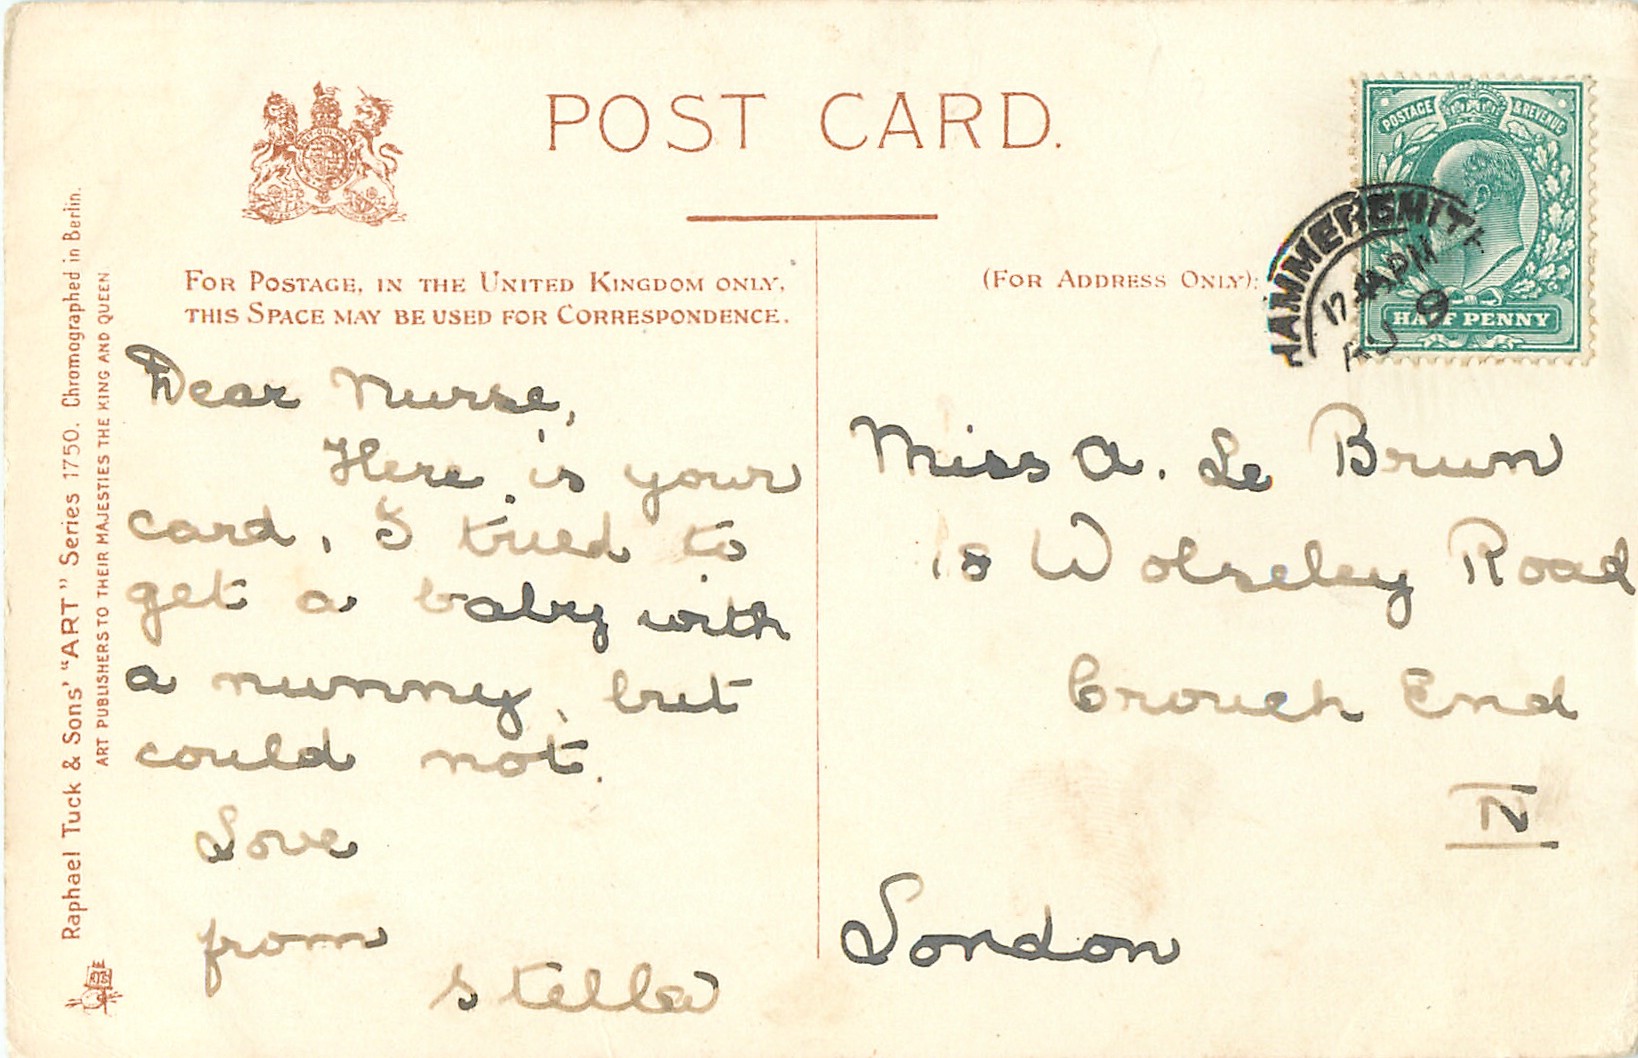 POST CARD.
FOR POSTAGE, IN THE UNITED KINGDOM ONLY,
THIS SPACE MAY BE USED FOR CORRESPONDENCE.
(FOR ADDRESS ONLY):
POSTAGE & REVENUE
HALF PENNY
HAMMERSMITH
Dear Nurse,
Here is your
card, I tried to
get a baby with
a nunny, but
could not.
Love
from
Stella
Miss A. Le Brun
Wolseley Road
Crouch End
N
London
Raphael Tuck & Sons' "ART" Series 1750. Chromographed in Berlin.
ART PUBLISHERS TO THEIR MAJESTIES THE KING AND QUEEN